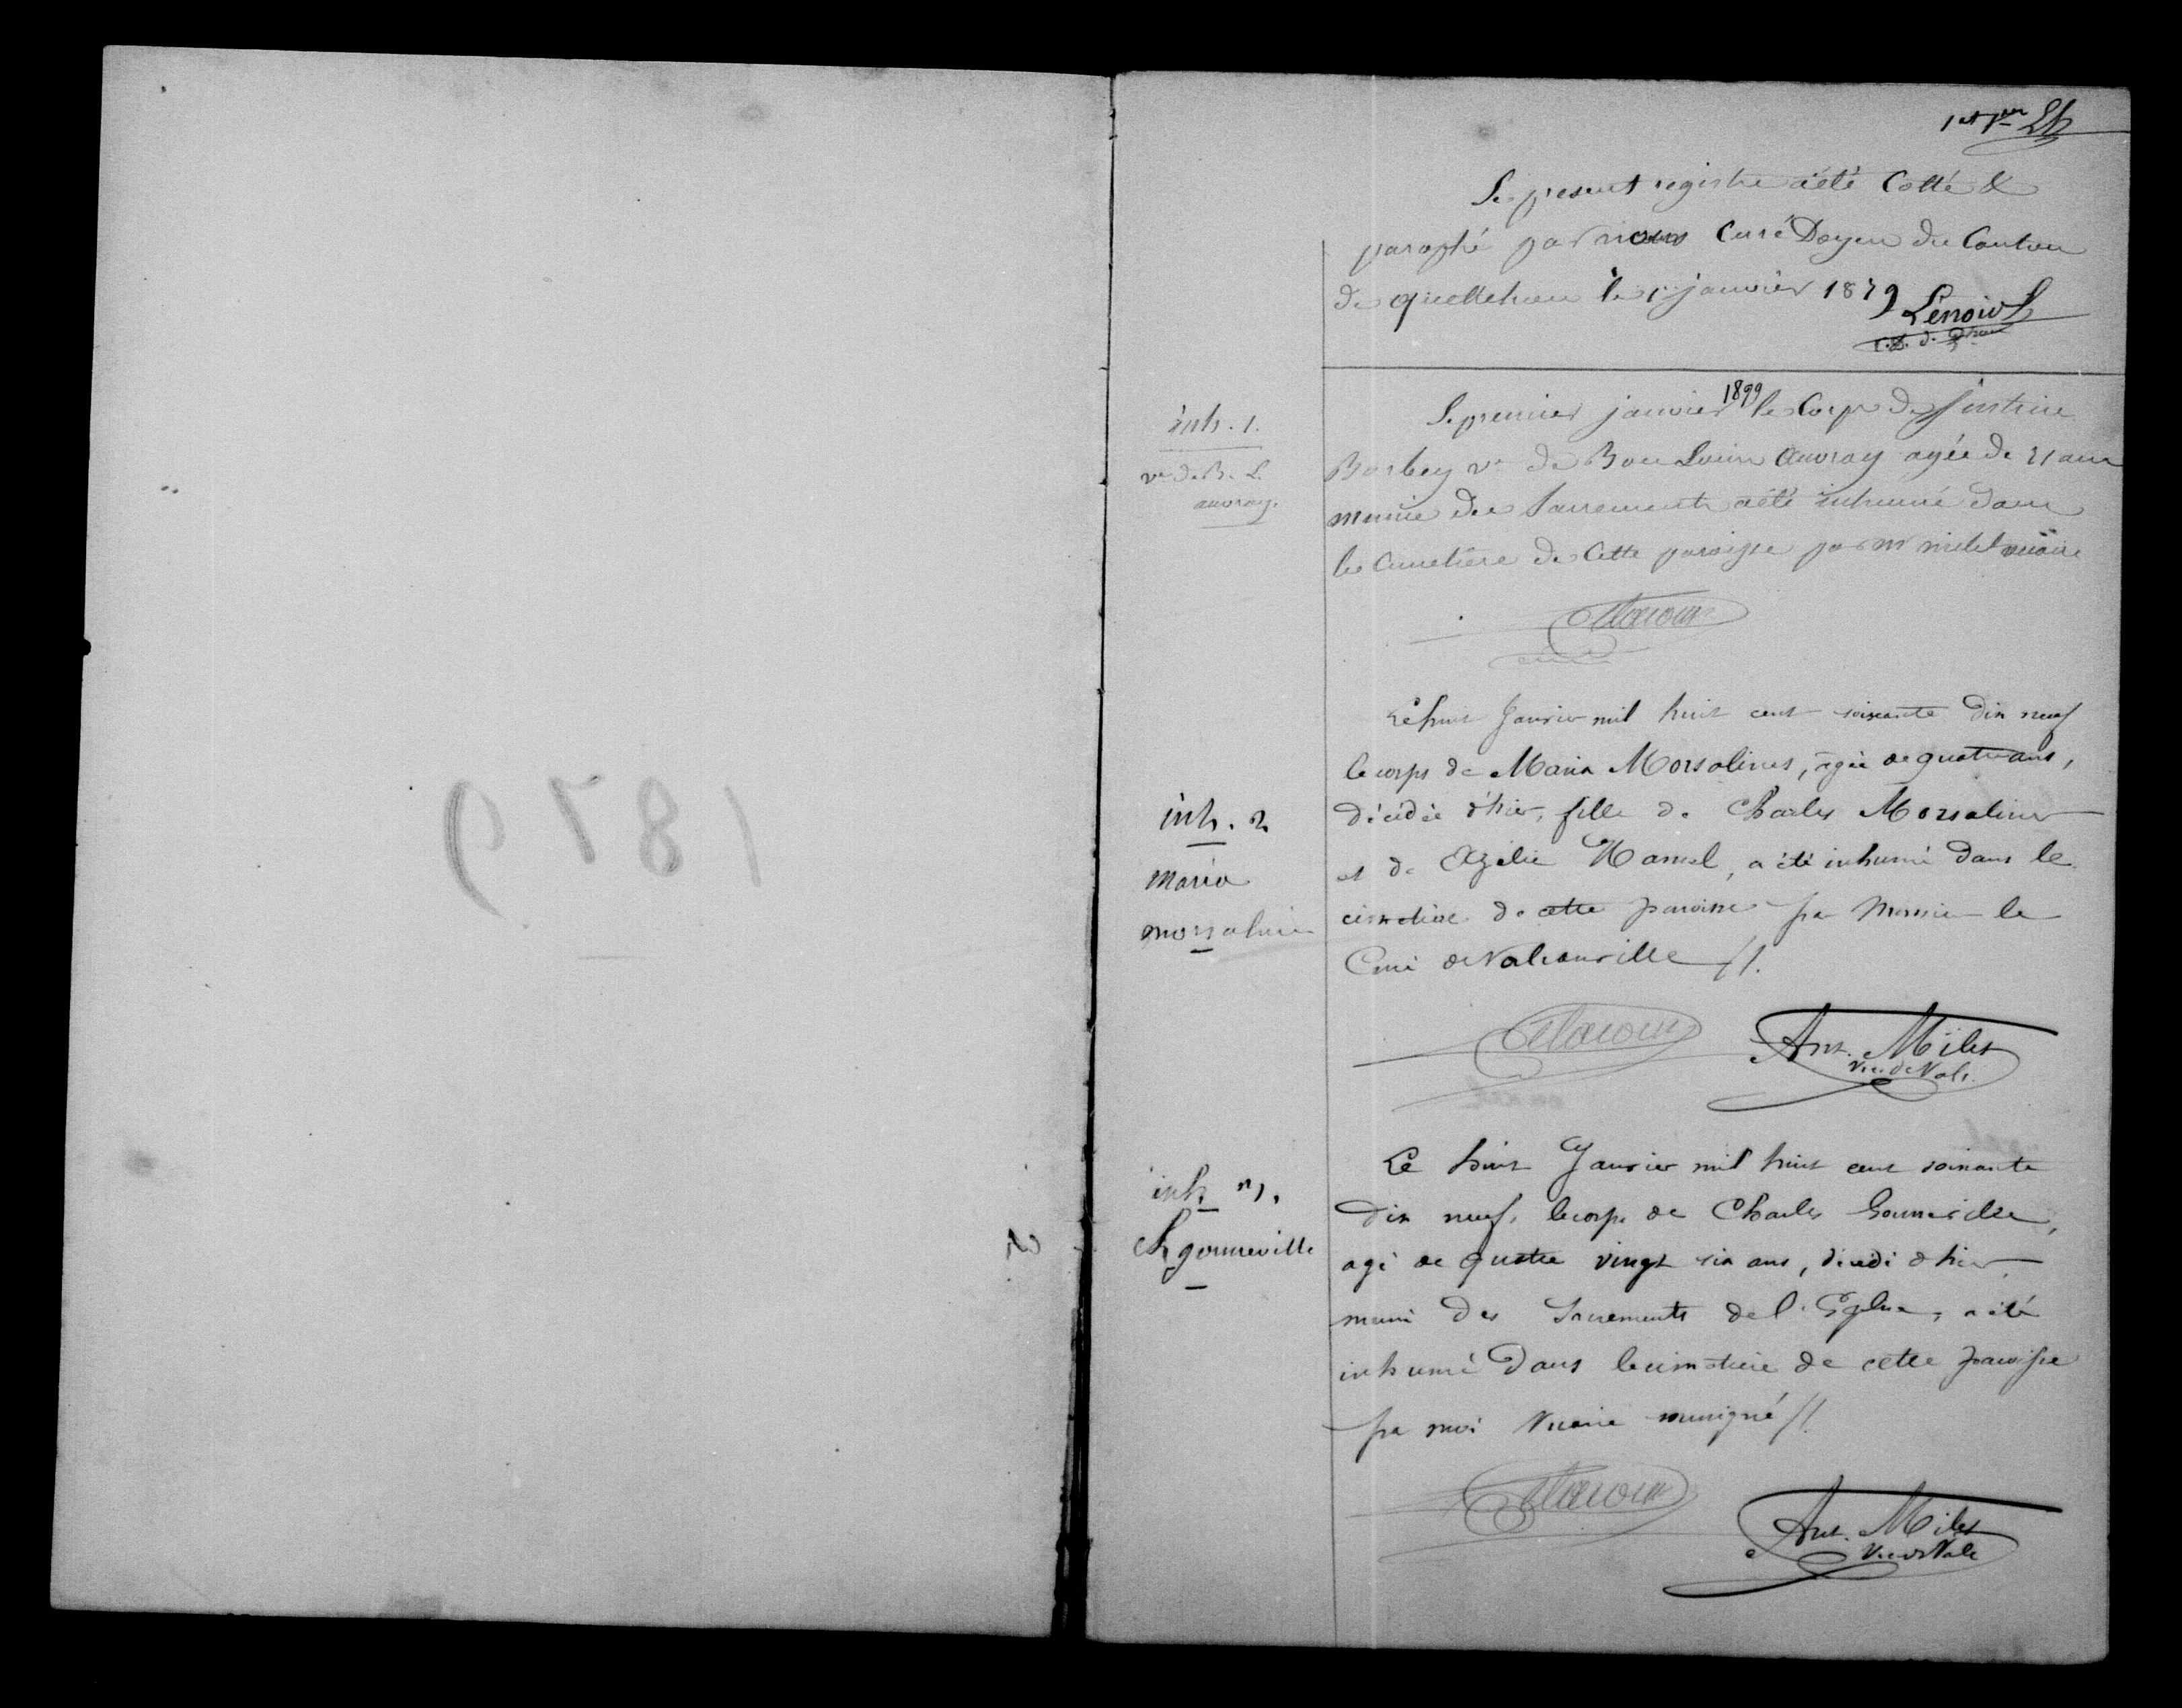 1879
1 et 1er
Le present registre a été Cotté &
paraphé par nous Curé Doyen du Canton
de quettehou le 1er janvier 1879 Lenoir
C. D. de
inh. 1.
ve de B. L.
auvray.
Le premier janvier 1899 le Corps de justine
Barbey ve de Bon Louin auvray agée de ans
munie des Sacrements a été inhumé dans
le Cimetière de Cette paroisse par mr milet vicaire
inh. 2
maria
morsalines
Le huit Janvier mil huit cent soixante dix neuf
le corps de Maria Morsalines, agée de quatre ans,
décédée d'hier, fille de Charles Morsalines
et de Hamel, a été inhumé dans le
cimetière de cette paroisse par Monsieur le
Curé de Valcanville //.
Ant. Milet
Vic. de Valc.
inh 3.
Ch gonneville
Le huit Janvier mil huit cent soixante
dix neuf, le corps de Charles Gonneville,
agé de quatre vingt six ans, décédé d'hier,
muni des Sacrements de l'Eglise, a été
inhumé dans le cimetière de cette paroisse
par moi Vicaire soussigné //.
Ant. Milet
Vic de Valc